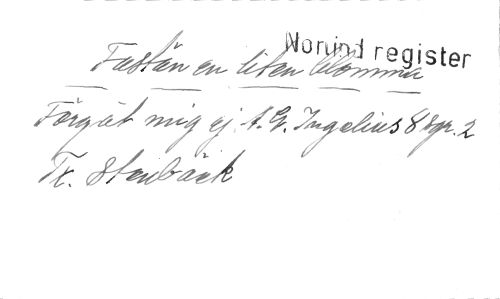 Nonind register
Fastän en liten blomma
Förgät mig ej. A. G. Ingelius 8 sgr. 2
Tx. Stenbäck